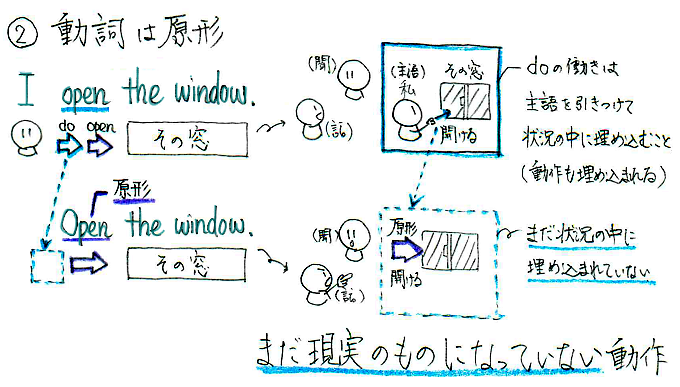 ② 動詞は原形
I open the window.
do open
その窓
(聞)
(話)
(主語)
私
その窓
開ける
doの働きは
主語を引きつけて
状況の中に埋め込むこと
(動作も埋め込まれる)
原形
Open the window.
その窓
(聞)
(話)
原形
開ける
まだ状況の中に
埋め込まれていない
まだ現実のものになっていない動作